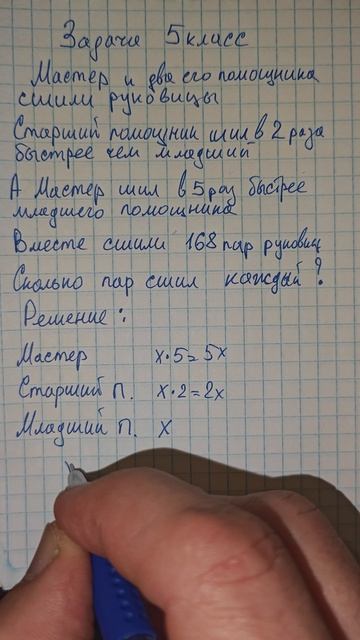 Задача 5 класс
Мастер и два его помощника
сшили руковицы
Старший помощник шил в 2 раза
быстрее чем младший
А Мастер шил в 5 раз быстрее
младшего помощника
Вместе сшили 168 пар руковиц
Сколько пар сшил каждый?
Решение:
Мастер x·5=5x
Старший п. x·2=2x
Младший п. x